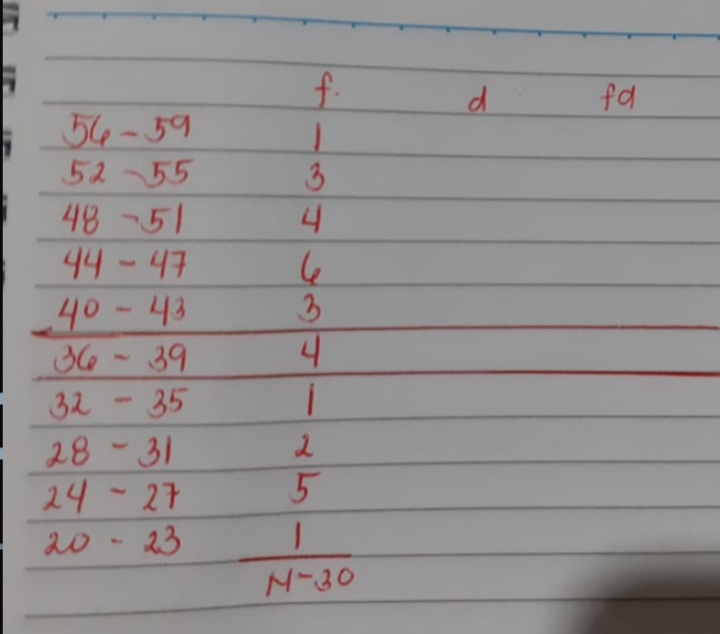 f. d fd
56-59 1
52-55 3
48-51 4
44-47 6
40-43 3
36-39 4
32-35 1
28-31 2
24-27 5
20-23 1
N-30